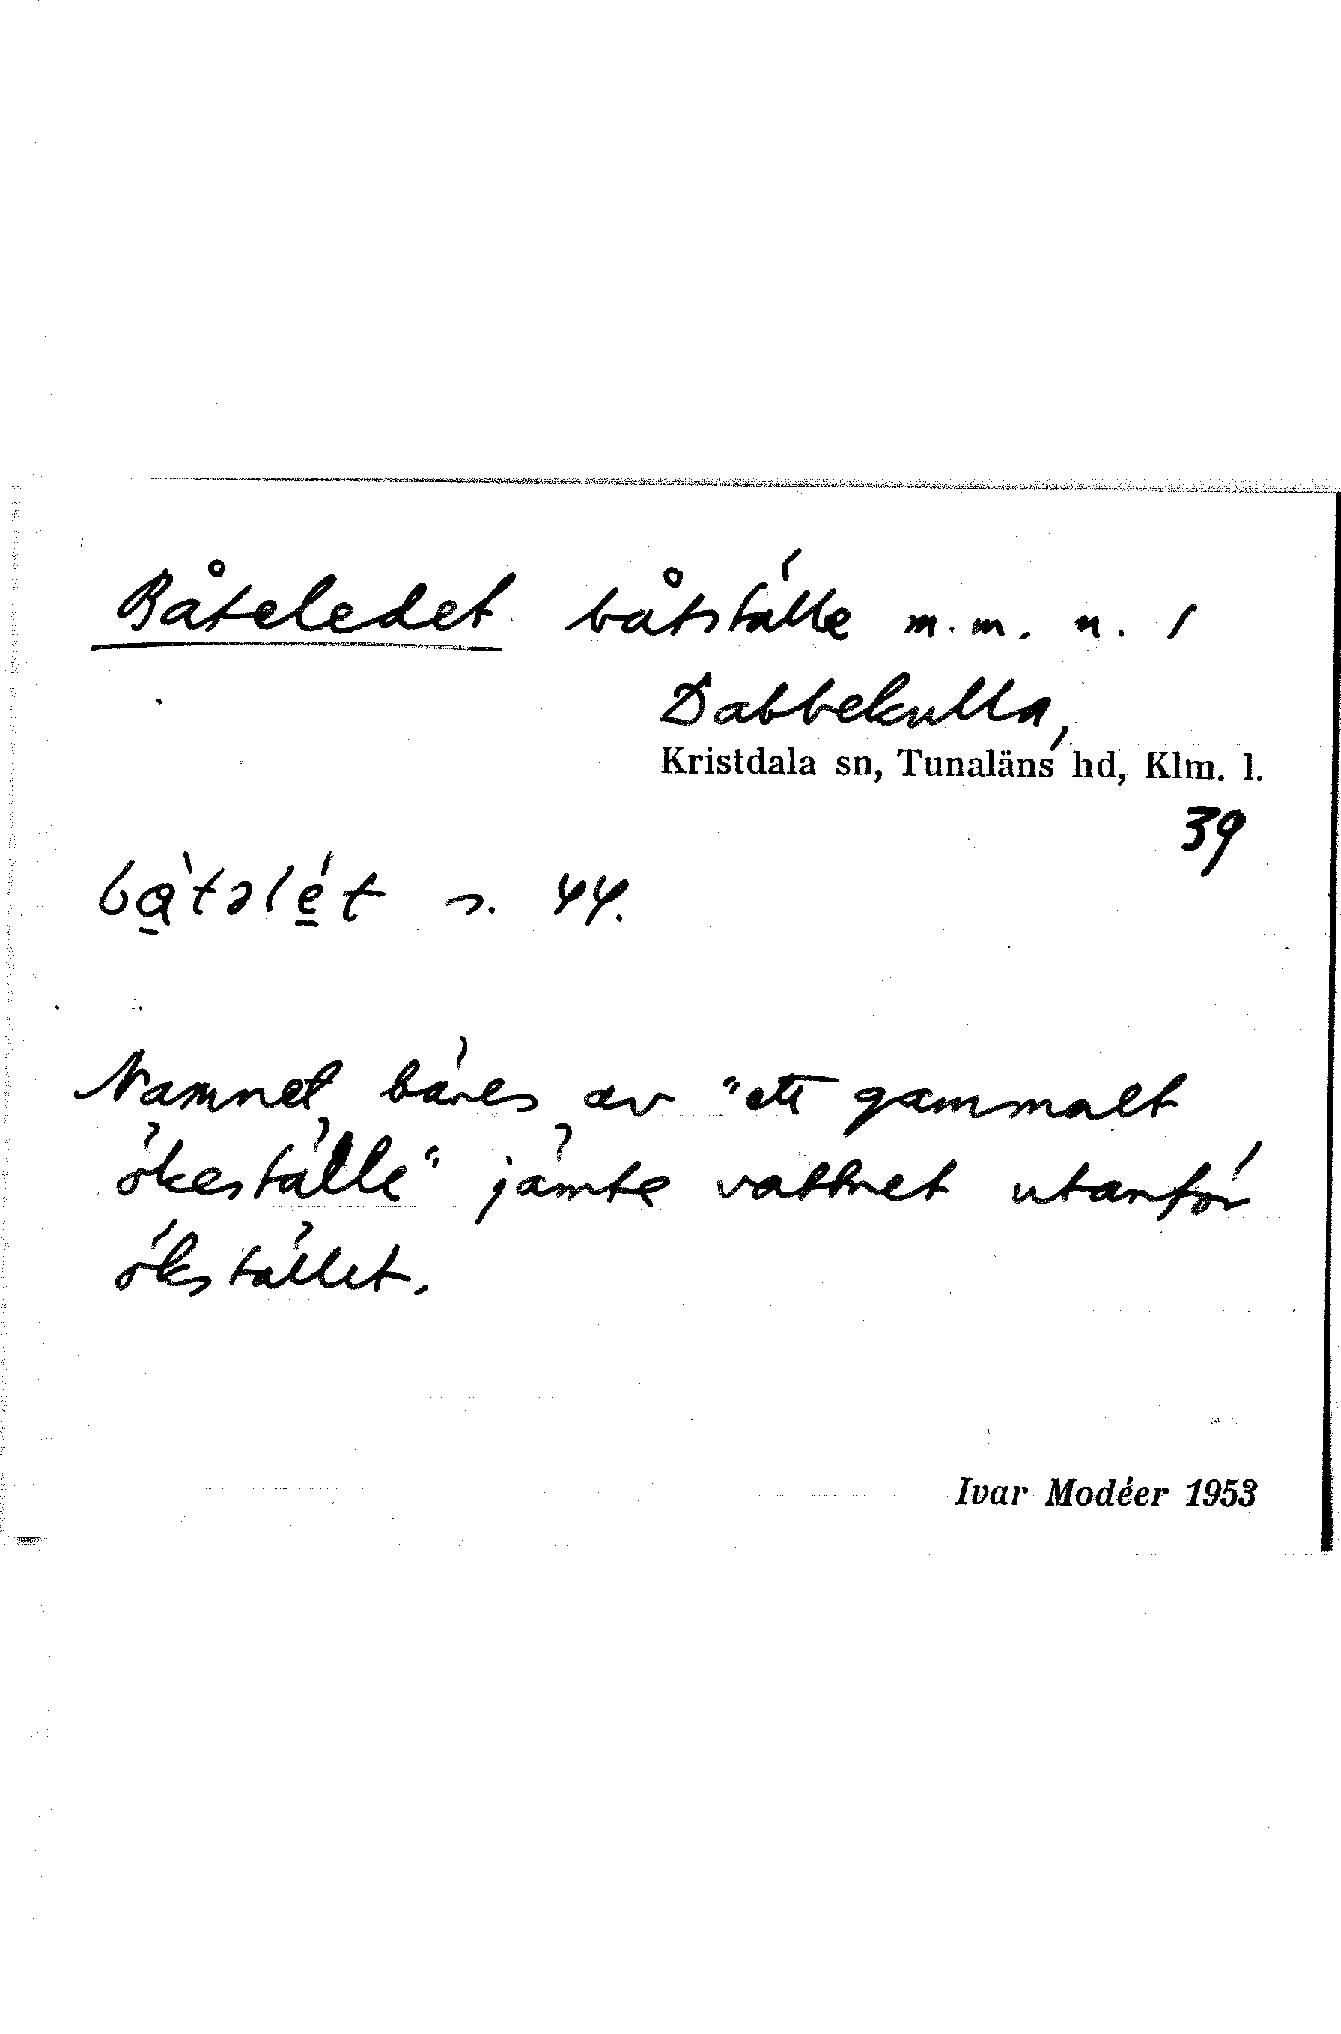 Båteledet båtställe m.m. n. 1
Dabbekulla,
Kristdala sn, Tunaläns hd, Klm. l.
39
bὰ̠təlé̠t s. 44.
Namnet bäres av "ett gammalt
ökeställe" jämte vattnet utanför
ökstället.
Ivar Modéer 1953